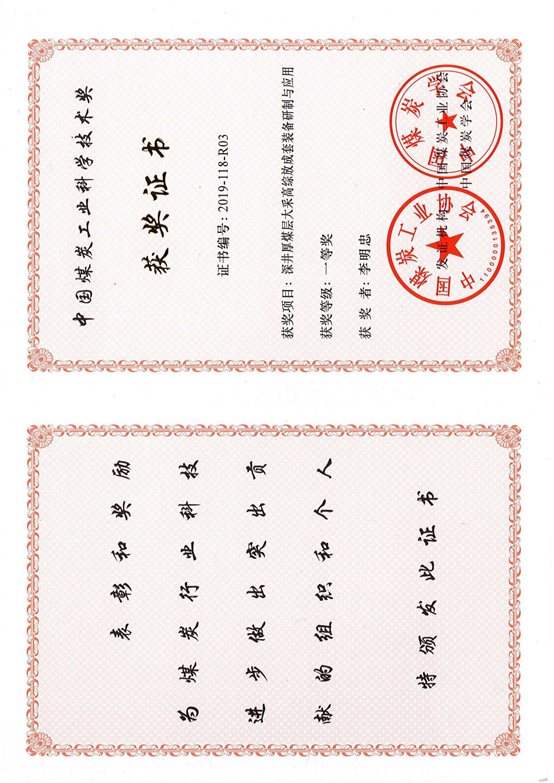 为煤炭行业科技
进步做出突出贡
献的组织和个人
表彰和奖励
特颁发此证书
中国煤炭工业科学技术奖
获奖证书
证书编号：2019-118-R03
获奖项目：深井厚煤层大采高综放成套装备研制与应用
获奖等级：一等奖
获奖者：李明忠
发证机构：中国煤炭工业协会
中国煤炭学会
中国煤炭工业协会
1100000126304
中国煤炭学会